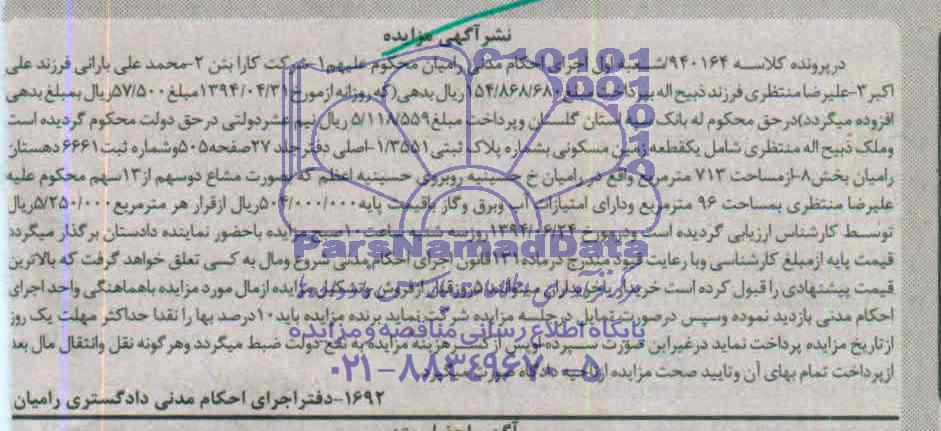 نشر آگهی مزایده
درپرونده کلاسه ۹۴۰۱۶۴/شعبه اول اجرای احکام مدنی رامیان محکوم علیهم ۱-شرکت کارا بتن ۲-محمد علی بارانی فرزند علی
اکبر ۳-علیرضا منتظری فرزند ذبیح اله بپرداخت مبلغ ۱۵۴/۸۶۸/۶۸۰ریال بدهی(که روزانه ازمورخ ۱۳۹۴/۰۴/۳۱مبلغ ۵۷/۵۰۰ریال بمبلغ بدهی
افزوده میگردد)درحق محکوم له بانک سپه استان گلستان وپرداخت مبلغ ۵/۱۱۸/۵۵۹ ریال نیم عشردولتی درحق دولت محکوم گردیده است
وملک ذبیح اله منتظری شامل یکقطعه زمین مسکونی بشماره پلاک ثبتی ۱/۳۵۵۱-اصلی دفترجلد ۲۷صفحه۵۰۵وشماره ثبت ۶۶۶۱ دهستان
رامیان بخش۸-ازمساحت ۷۱۳ مترمربع واقع در رامیان خ حسینیه روبروی حسینیه اعظم که بصورت مشاع دوسهم از۱۳سهم محکوم علیه
علیرضا منتظری بمساحت ۹۶ مترمربع ودارای امتیازات آب وبرق وگاز باقیمت پایه ۵۰۴/۰۰۰/۰۰۰ریال ازقرار هر مترمربع ۵/۲۵۰/۰۰۰ریال
توسط کارشناس ارزیابی گردیده است ودرمورخ ۱۳۹۴/۰۶/۲۴روزسه شنبه ساعت ۱۰صبح مزایده باحضور نماینده دادستان برگذار میگردد
ParsNamadData
قیمت پایه ازمبلغ کارشناسی وبا رعایت قیود مندرج درماده ۱۳۱قانون اجرای احکام مدنی شروع ومال به کسی تعلق خواهد گرفت که بالاترین
قیمت پیشنهادی را قبول کرده است خریداریاخریداران میتوانند۵روزقبل ازفروش وتشکیل مزایده ازمال مورد مزایده باهماهنگی واحد اجرای
احکام مدنی بازدید نموده وسپس درصورت تمایل درجلسه مزایده شرکت نماید برنده مزایده باید ۱۰درصد بها را نقدا حداکثر مهلت یک روز
پایگاه اطلاع رسانی مناقصه و مزایده
ازتاریخ مزایده پرداخت نماید درغیراین صورت سپرده اوپس ازکسر هزینه مزایده به نفع دولت ضبط میگردد وهرگونه نقل وانتقال مال بعد
ازپرداخت تمام بهای آن وتایید صحت مزایده ازناحیه دادگاه صورت میگیرد
۰۲۱-۸۸۳۴۹۶۷۰-۵
۱۶۹۲-دفتراجرای احکام مدنی دادگستری رامیان